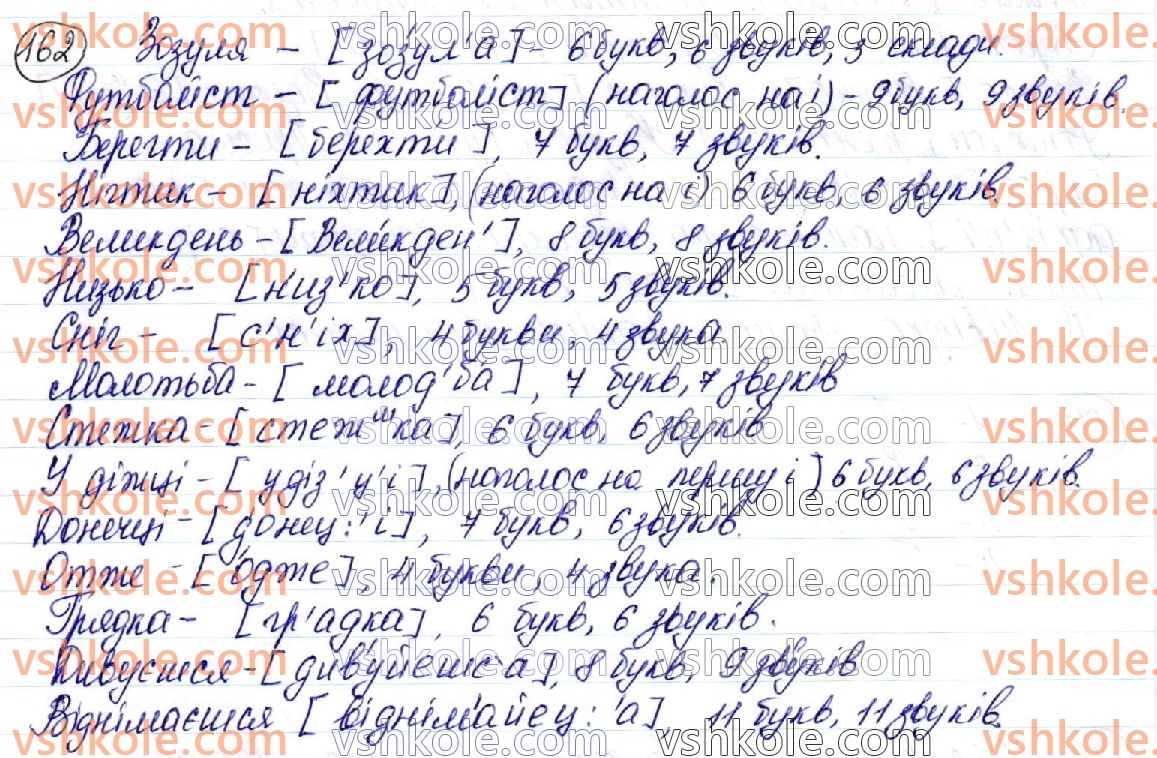 162 Зозуля – [зозул'а] – 6 букв, 6 звуків, 3 склади.
Футболіст – [футболіст] (наголос на і) – 9 букв, 9 звуків.
Берегти – [берехти], 7 букв, 7 звуків.
Нігтик – [ніхтик], (наголос на і) 6 букв, 6 звуків.
Великдень – [Великден'], 8 букв, 8 звуків.
Низько – [низ'ко], 5 букв, 5 звуків.
Сніг – [с'н'іх], 4 букви, 4 звука.
Молотьба – [молод'ба], 7 букв, 7 звуків
Стежка – [стежшка], 6 букв, 6 звуків
У діжці – [удіз'ц'і], (наголос на першу і) 6 букв, 6 звуків.
Донечці – [донец:'і], 7 букв, 6 звуків.
Отже – [одже], 4 букви, 4 звука.
Грядка – [гр'адка], 6 букв, 6 звуків.
Дивуєшся – [дивуйешса], 8 букв, 9 звуків
Віднімаєшся [віднімайец:'а], 11 букв, 11 звуків.
vshkole.com